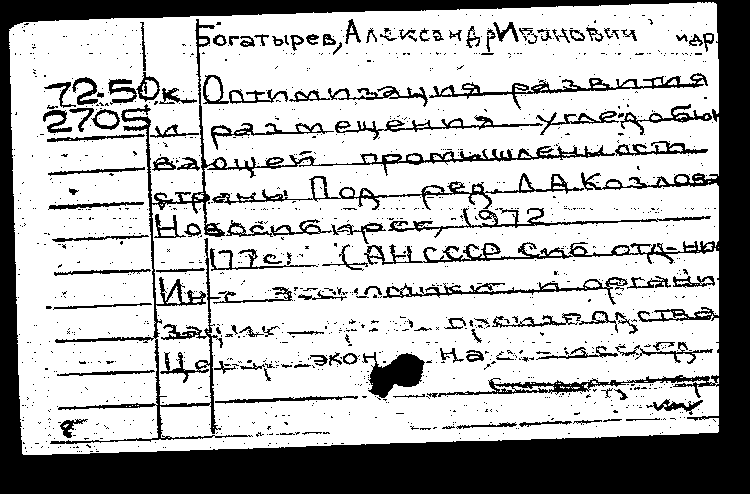 Богатырев, Александр Иванович и др.
72-50к Оптимизация развития
2705 и размещения угледобы
вающей промышленности
страны Под ред. Л А Козлова
Новосибирск, 1972
177с. (АН СССР Сиб. отд-ние
Ин-т экономики и органи
зации производства
экон
8